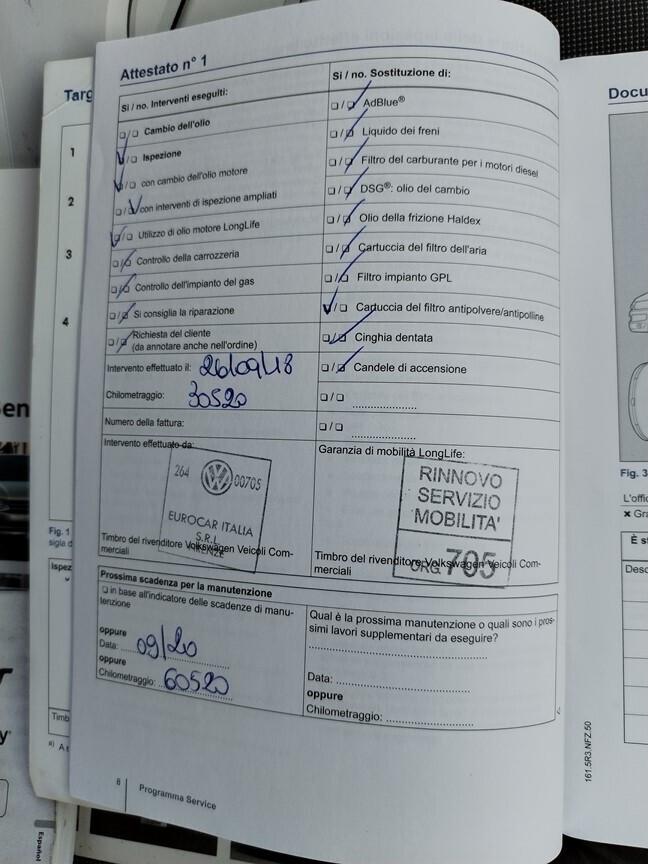 Attestato n° 1
Si / no. Interventi eseguiti:
❏/❏ Cambio dell'olio
❏/❏ Ispezione
❏/❏ con cambio dell'olio motore
❏/❏ con interventi di ispezione ampliati
❏/❏ Utilizzo di olio motore LongLife
❏/❏ Controllo della carrozzeria
❏/❏ Controllo dell'impianto del gas
❏/❏ Si consiglia la riparazione
❏/❏ Richiesta del cliente
(da annotare anche nell'ordine)
Intervento effettuato il: 26/09/18
Chilometraggio: 30520
Numero della fattura:
Intervento effettuato da:
264 00705
EUROCAR ITALIA
S.R.L.
Timbro del rivenditore Volkswagen Veicoli Com-
merciali
Si / no. Sostituzione di:
❏/❏ AdBlue®
❏/❏ Liquido dei freni
❏/❏ Filtro del carburante per i motori diesel
❏/❏ DSG®: olio del cambio
❏/❏ Olio della frizione Haldex
❏/❏ Cartuccia del filtro dell'aria
❏/❏ Filtro impianto GPL
❏/❏ Cartuccia del filtro antipolvere/antipolline
❏/❏ Cinghia dentata
❏/❏ Candele di accensione
❏/❏ ....................
❏/❏ ....................
Garanzia di mobilità LongLife:
RINNOVO
SERVIZIO
MOBILITA'
ORG. 705
Timbro del rivenditore Volkswagen Veicoli Com-
merciali
Prossima scadenza per la manutenzione
❏ in base all'indicatore delle scadenze di manu-
tenzione
oppure
Data: 09/20
oppure
Chilometraggio: 60520
Qual è la prossima manutenzione o quali sono i pros-
simi lavori supplementari da eseguire?
Data:
oppure
Chilometraggio:
6 Programma Service
Targ
1
2
3
4
Fig. 1
sigla d
Ispez
Timb
a) A t
Español
Docu
Fig. 3
L'offic
✖ Gra
È st
Desc
161.5R3.NFZ.50